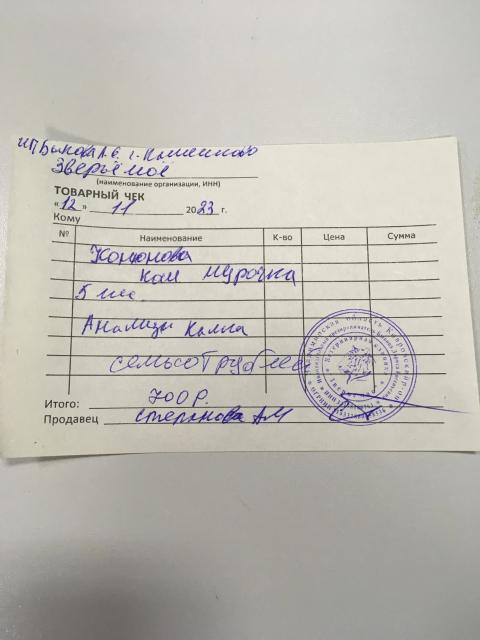 ИП Быкова А.С. г.
Зверьё моё
(наименование организации, ИНН)
ТОВАРНЫЙ ЧЕК
«12» 11 2023 г.
Кому
№ Наименование К-во Цена Сумма
Кононова
кош Мурочка
5 мес.
Анализы калла
семьсот рублей
Итого: 700 Р.
Продавец Степанова АМ